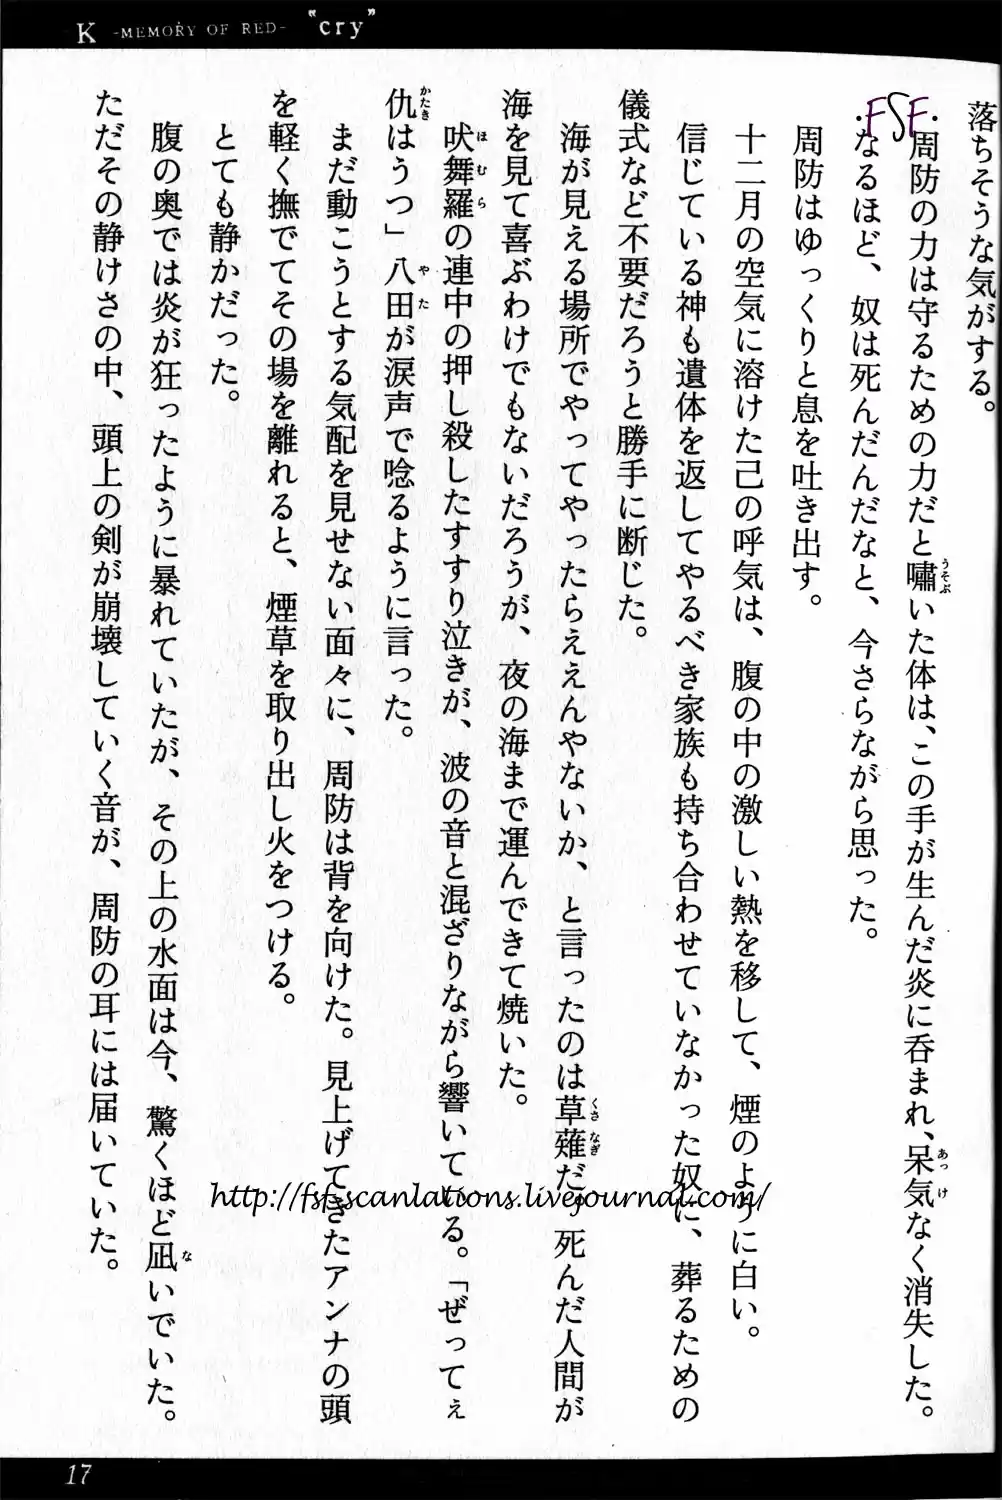 K -MEMORY OF RED- "cry"
落ちそうな気がする。
・FSF・
周防の力は守るための力だと嘯いた体は、この手が生んだ炎に呑まれ、呆気なく消失した。
なるほど、奴は死んだんだなと、今さらながら思った。
周防はゆっくりと息を吐き出す。
十二月の空気に溶けた己の呼気は、腹の中の激しい熱を移して、煙のように白い。
信じている神も遺体を返してやるべき家族も持ち合わせていなかった奴に、葬るための
儀式など不要だろうと勝手に断じた。
海が見える場所でやってやったらええんやないか、と言ったのは草薙だ。死んだ人間が
海を見て喜ぶわけでもないだろうが、夜の海まで運んできて焼いた。
吠舞羅の連中の押し殺したすすり泣きが、波の音と混ざりながら響いている。「ぜってぇ
仇はうつ」八田が涙声で唸るように言った。
まだ動こうとする気配を見せない面々に、周防は背を向けた。見上げてきたアンナの頭
を軽く撫でてその場を離れると、煙草を取り出し火をつける。
とても静かだった。
腹の奥では炎が狂ったように暴れていたが、その上の水面は今、驚くほど凪いでいた。
ただその静けさの中、頭上の剣が崩壊していく音が、周防の耳には届いていた。
http://fsf-scanlations.livejournal.com/
17